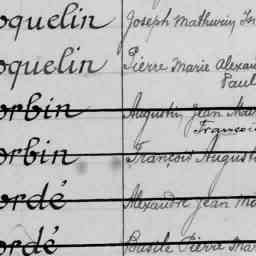 oquelin Joseph Mathurin
oquelin Pierre Marie
Paul
orbin Augustin Jean
François
orbin François
ordé Alexandre Jean
ordé Basile Pierre